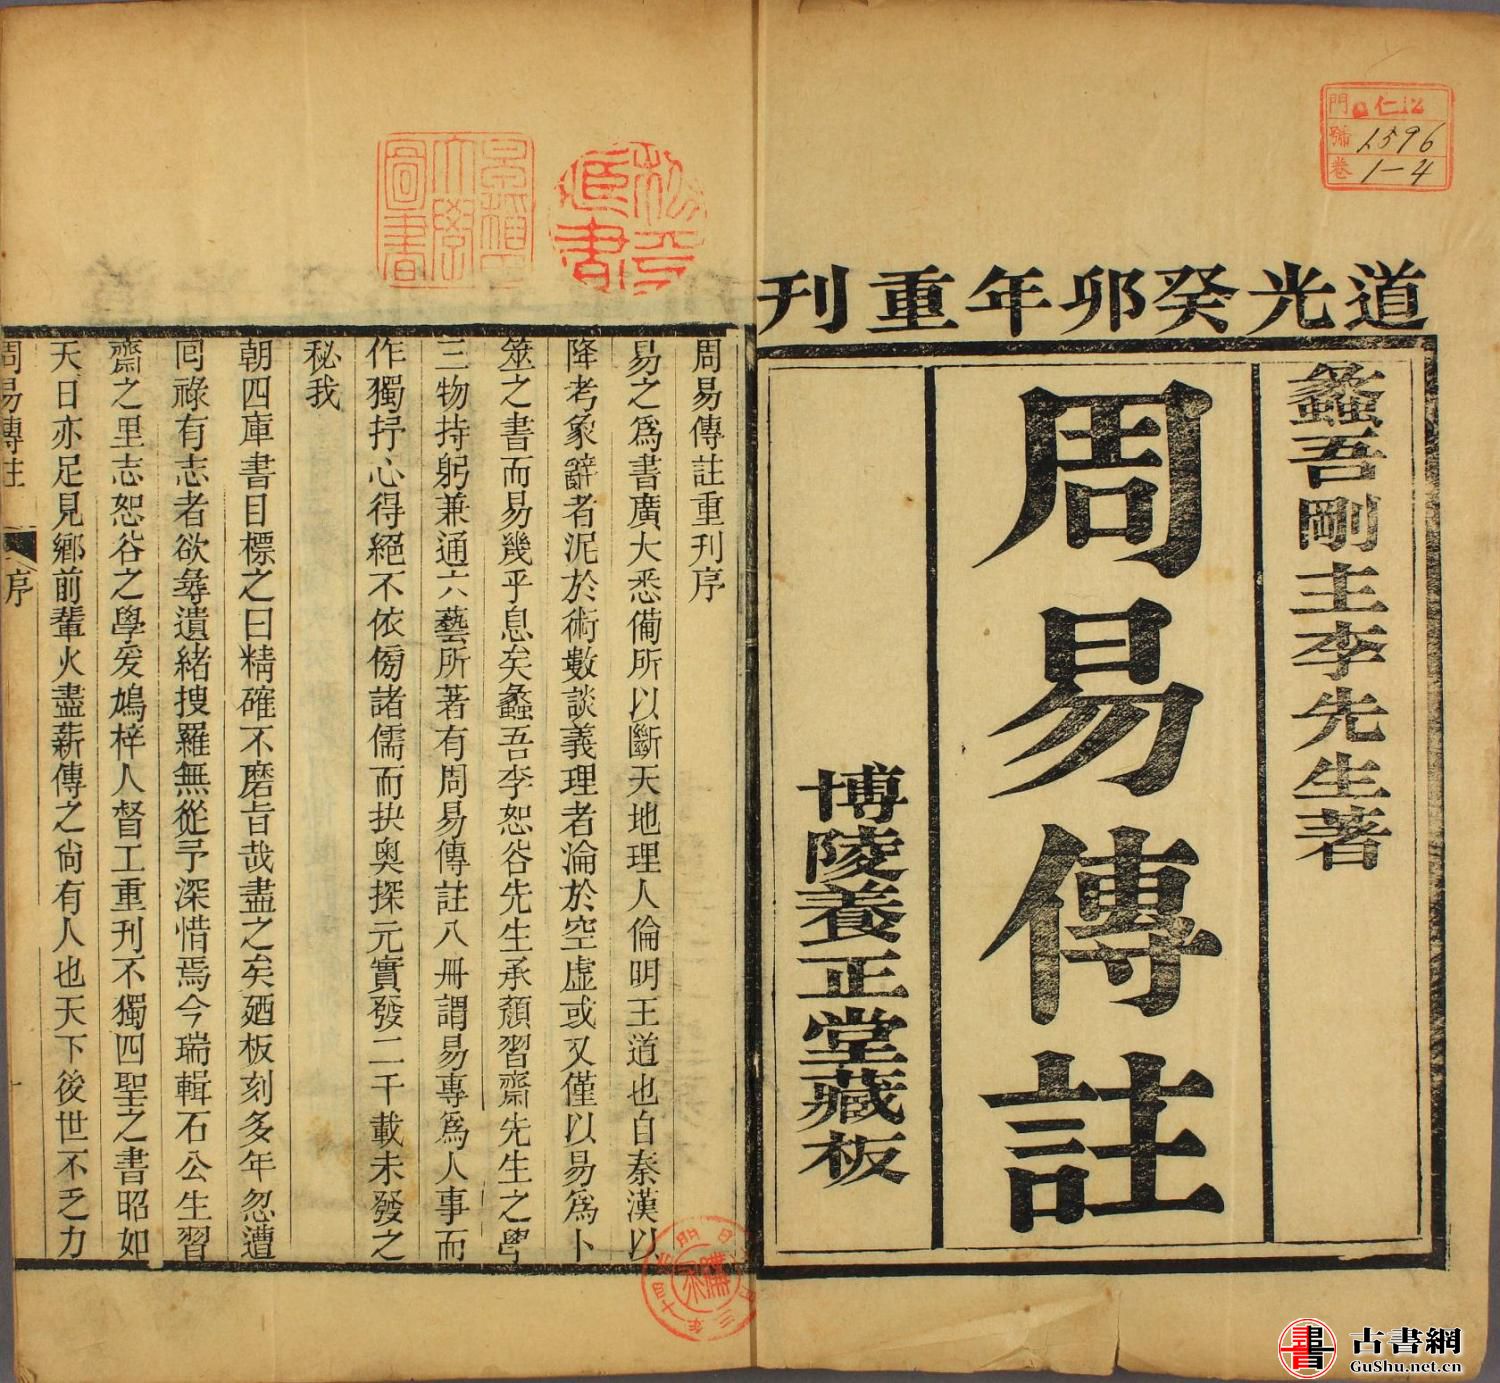 道光癸卯年重刊
蠡吾剛主李先生著
周易傳註
博陵養正堂藏板
門 仁12
號 1596
卷 1-4
周易傳註重刊序
易之爲書廣大悉備所以斷天地理人倫明王道也自秦漢以
降考象辭者泥於術數談義理者淪於空虛或又僅以易爲卜
筮之書而易幾乎息矣蠡吾李恕谷先生承顏習齋先生之學
三物持躬兼通六藝所著有周易傳註八冊謂易專爲人事而
作獨抒心得絕不依傍諸儒而抉奧探元實發二千載未發之
秘我
朝四庫書目標之曰精確不磨旨哉盡之矣廼板刻多年忽遭
囘祿有志者欲尋遺緒搜羅無從予深惜焉今瑞輯石公生習
齋之里志恕谷之學爰鳩梓人督工重刊不獨四聖之書昭如
天日亦足見鄉前輩火盡薪傳之尙有人也天下後世不乏力
周易傳註 序
圖書
古書網
GuShu.net.cn